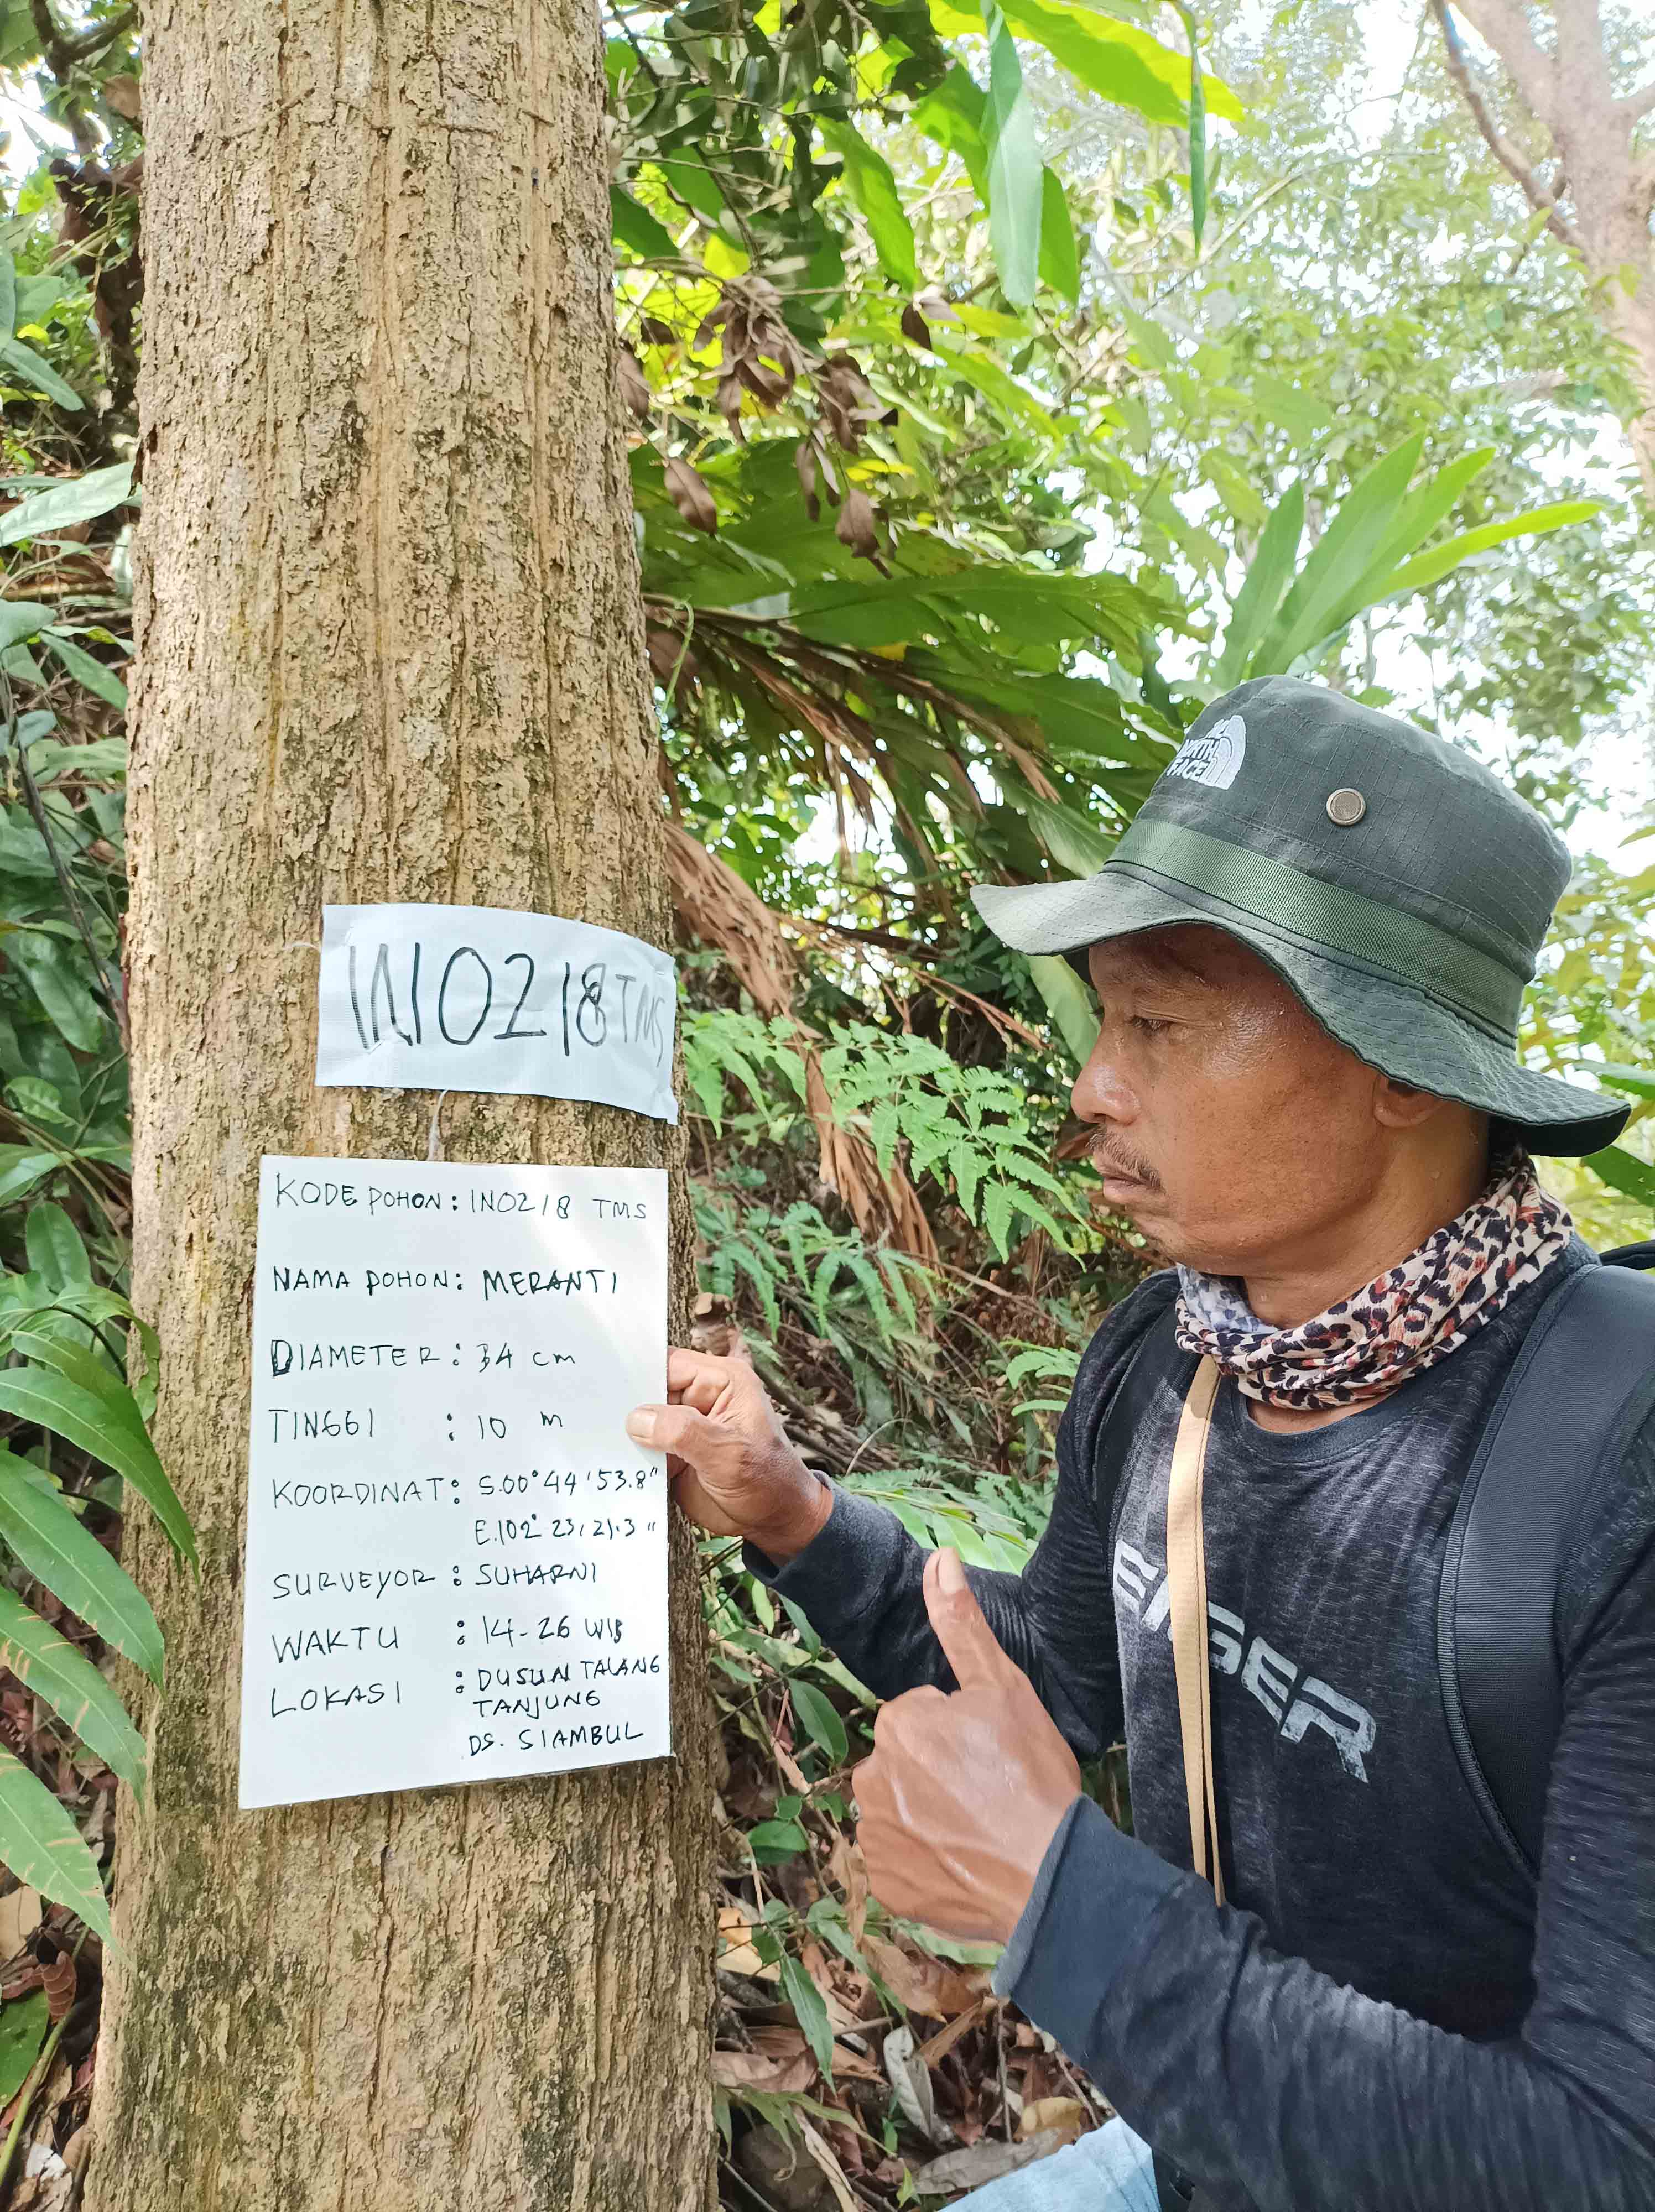 THE
NORTH
FACE
INO218 TMS
KODE POHON : INO218 TMS
NAMA POHON : MERANTI
DIAMETER : 34 cm
TINGGI : 10 m
KOORDINAT : S.00° 44' 53.8"
E.102° 23, 21.3 "
SURVEYOR : SUHARNI
WAKTU : 14-26 WIB
LOKASI : DUSUN TALANG
TANJUNG
DS. SIAMBUL
EIGER